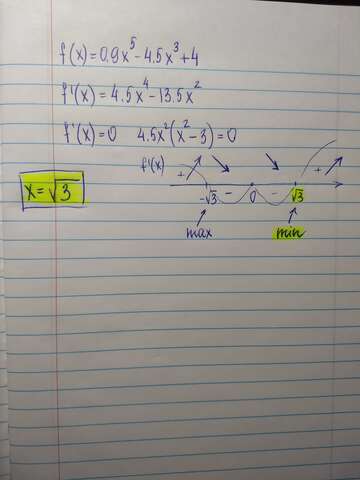 f(x)=0.9x⁵-4.5x³+4
f'(x)=4.5x⁴-13.5x²
f'(x)=0 4.5x²(x²-3)=0
f'(x) + - - +
x=√3
-√3 0 √3
max min